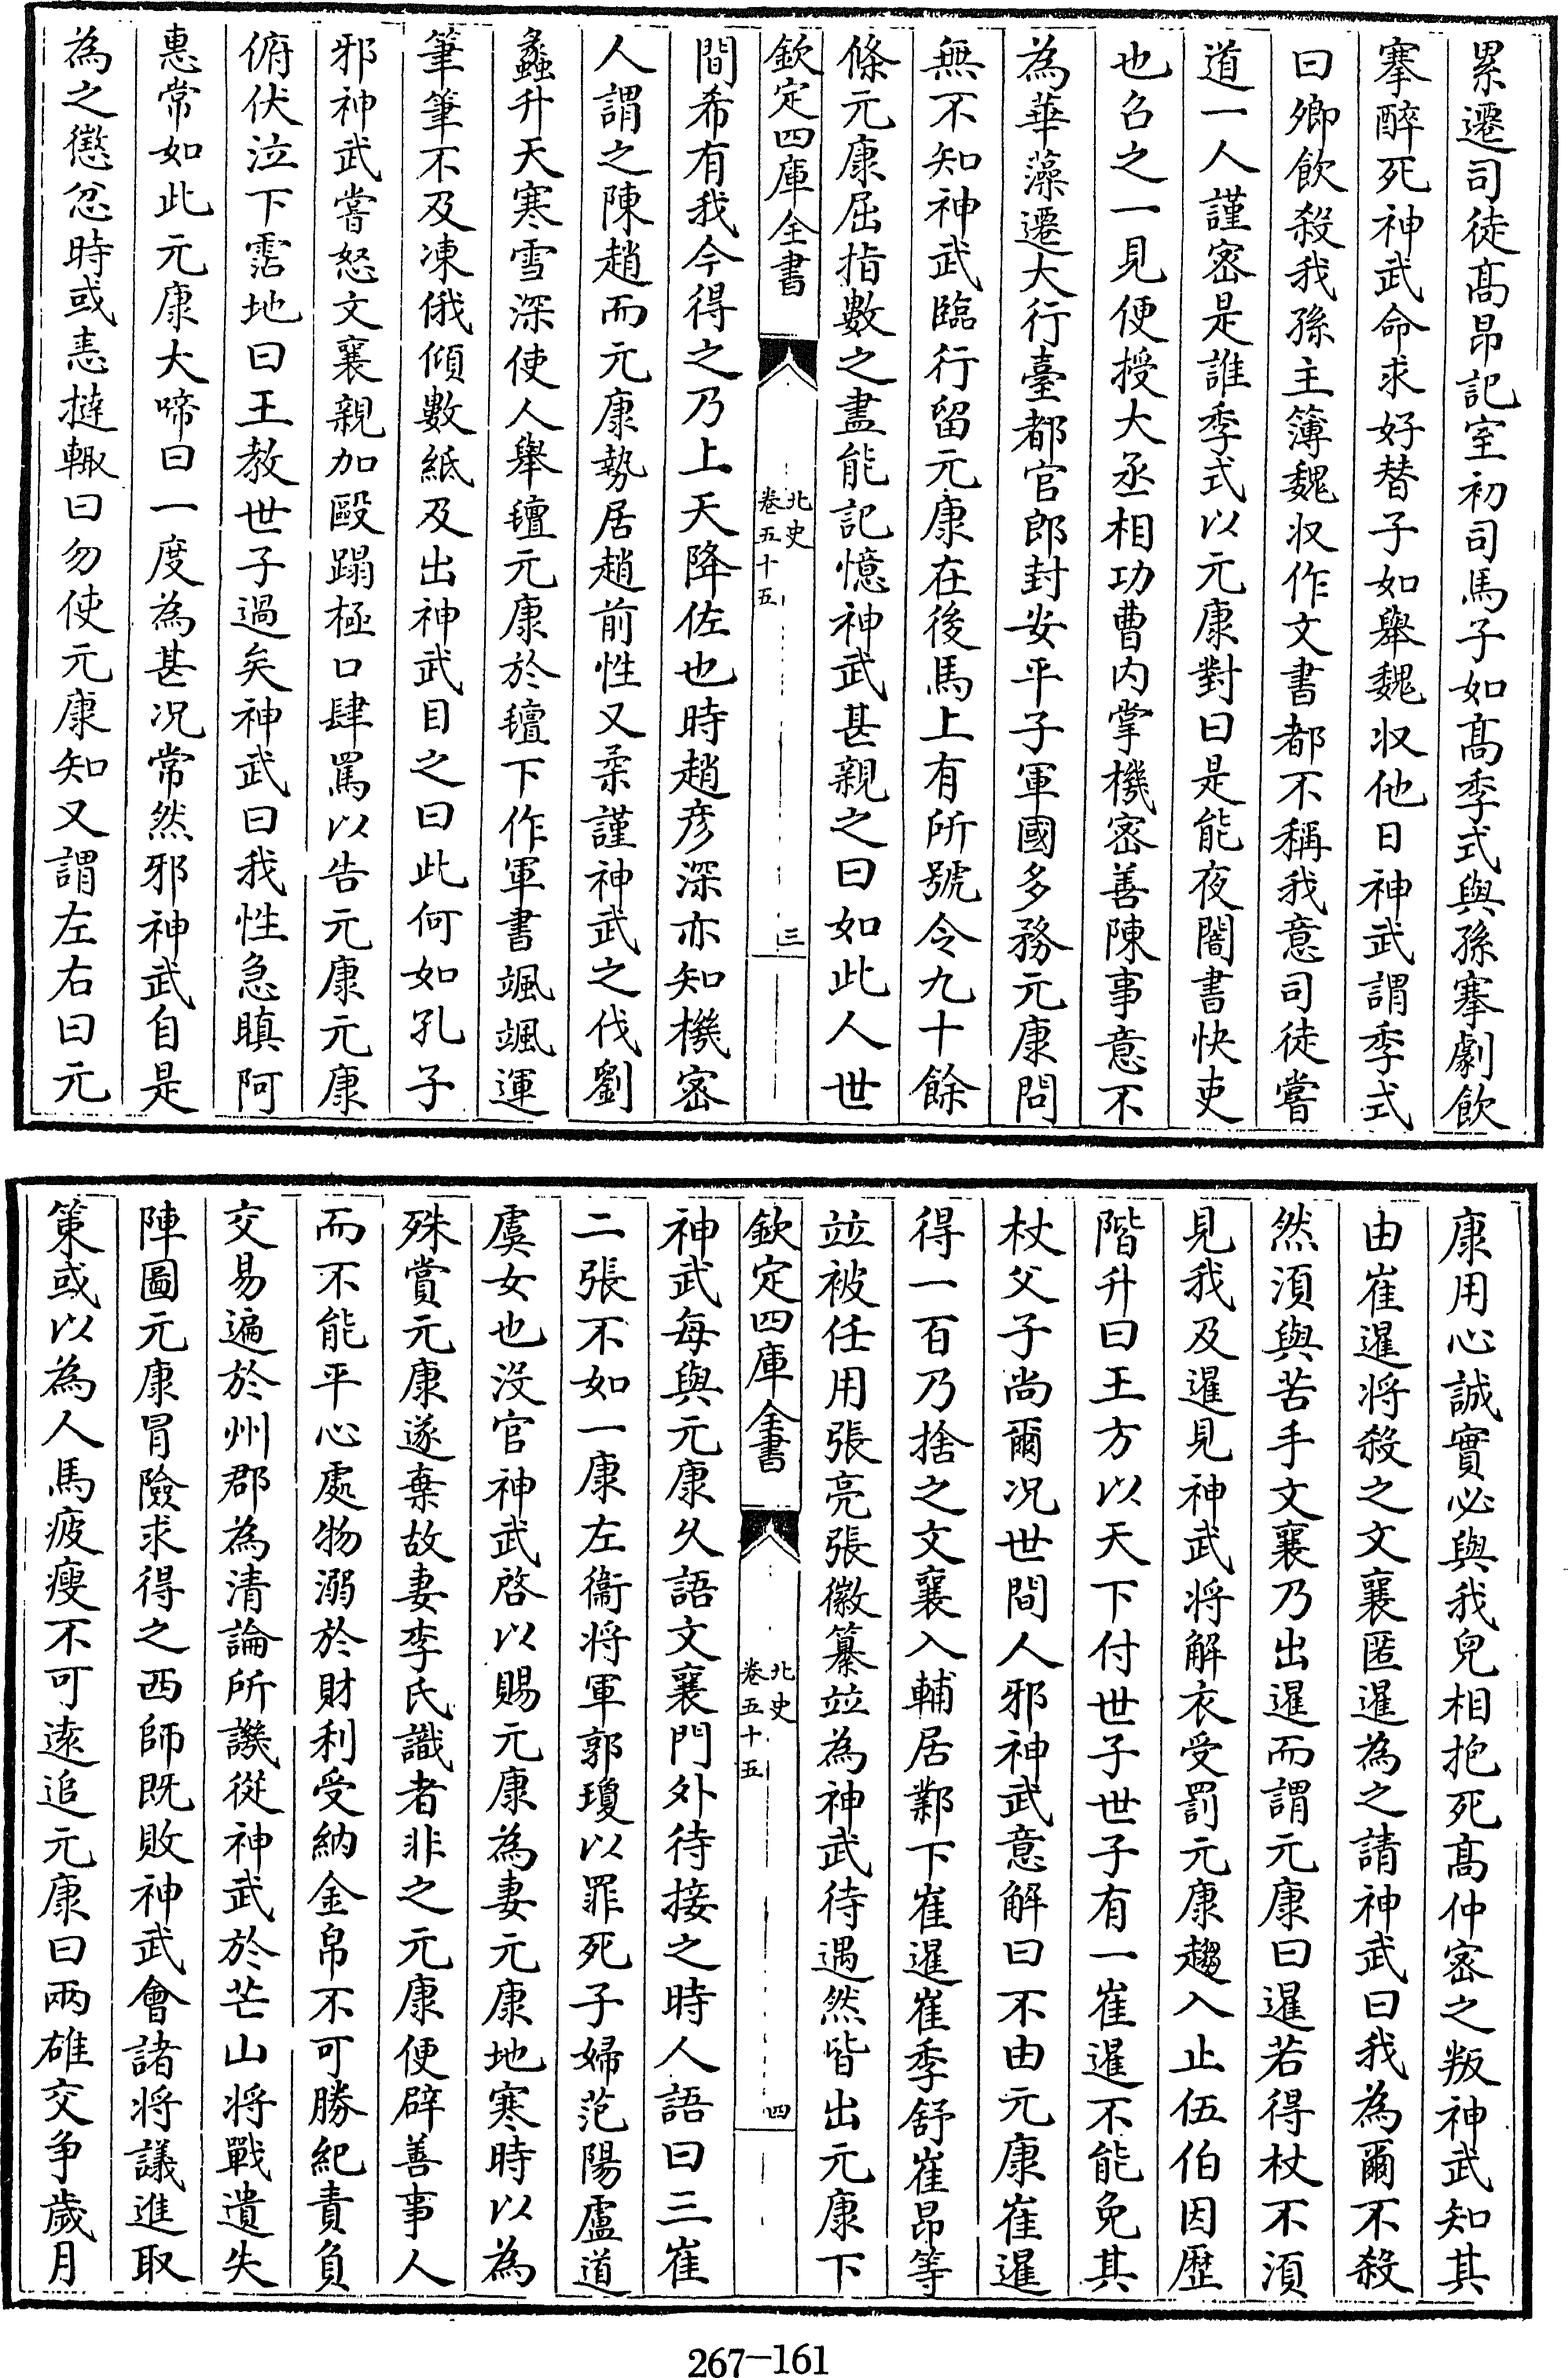 累遷司徒髙昂記室初司馬子如髙季式與孫搴劇飲
搴醉死神武命求好替子如舉魏収他日神武謂季式
曰卿飲殺我孫主簿魏収作文書都不稱我意司徒嘗
道一人謹宻是誰季式以元康對曰是能夜闇書快吏
也召之一見便授大丞相功曹内掌機宻善陳事意不
為華藻遷大行臺都官郎封安平子軍國多務元康問
無不知神武臨行留元康在後馬上有所號令九十餘
條元康屈指數之盡能記憶神武甚親之曰如此人世
欽定四庫全書
北史
卷五十五
三
間希有我今得之乃上天降佐也時趙彦深亦知機宻
人謂之陳趙而元康勢居趙前性又柔謹神武之伐劉
蠡升天寒雪深使人舉氊元康於氊下作軍書颯颯運
筆筆不及凍俄傾數紙及出神武目之曰此何如孔子
邪神武嘗怒文襄親加毆蹋極口肆罵以告元康元康
俯伏泣下霑地曰王教世子過矣神武曰我性急瞋阿
惠常如此元康大啼曰一度為甚况常然邪神武自是
為之懲忿時或恚撻輙曰勿使元康知又謂左右曰元
康用心誠實必與我兒相抱死髙仲宻之叛神武知其
由崔暹将殺之文襄匿暹為之請神武曰我為爾不殺
然湏與苦手文襄乃出暹而謂元康曰暹若得杖不湏
見我及暹見神武将解衣受罰元康趨入止伍伯因歴
階升曰王方以天下付世子世子有一崔暹不能免其
杖父子尚爾况世間人邪神武意解曰不由元康崔暹
得一百乃捨之文襄入輔居鄴下崔暹崔季舒崔昂等
竝被任用張亮張徽纂竝為神武待遇然皆出元康下
欽定四庫全書
北史
卷五十五
四
神武每與元康乆語文襄門外待接之時人語曰三崔
二張不如一康左衞将軍郭瓊以罪死子婦范陽盧道
虞女也沒官神武啓以賜元康為妻元康地寒時以為
殊賞元康遂棄故妻李氏識者非之元康便辟善事人
而不能平心處物溺於財利受納金帛不可勝紀責負
交易遍於州郡為清論所譏從神武於芒山将戰遺失
陣圖元康冒險求得之西師既敗神武會諸将議進取
策或以為人馬疲瘦不可逺追元康曰兩雄交争歳月
267-161